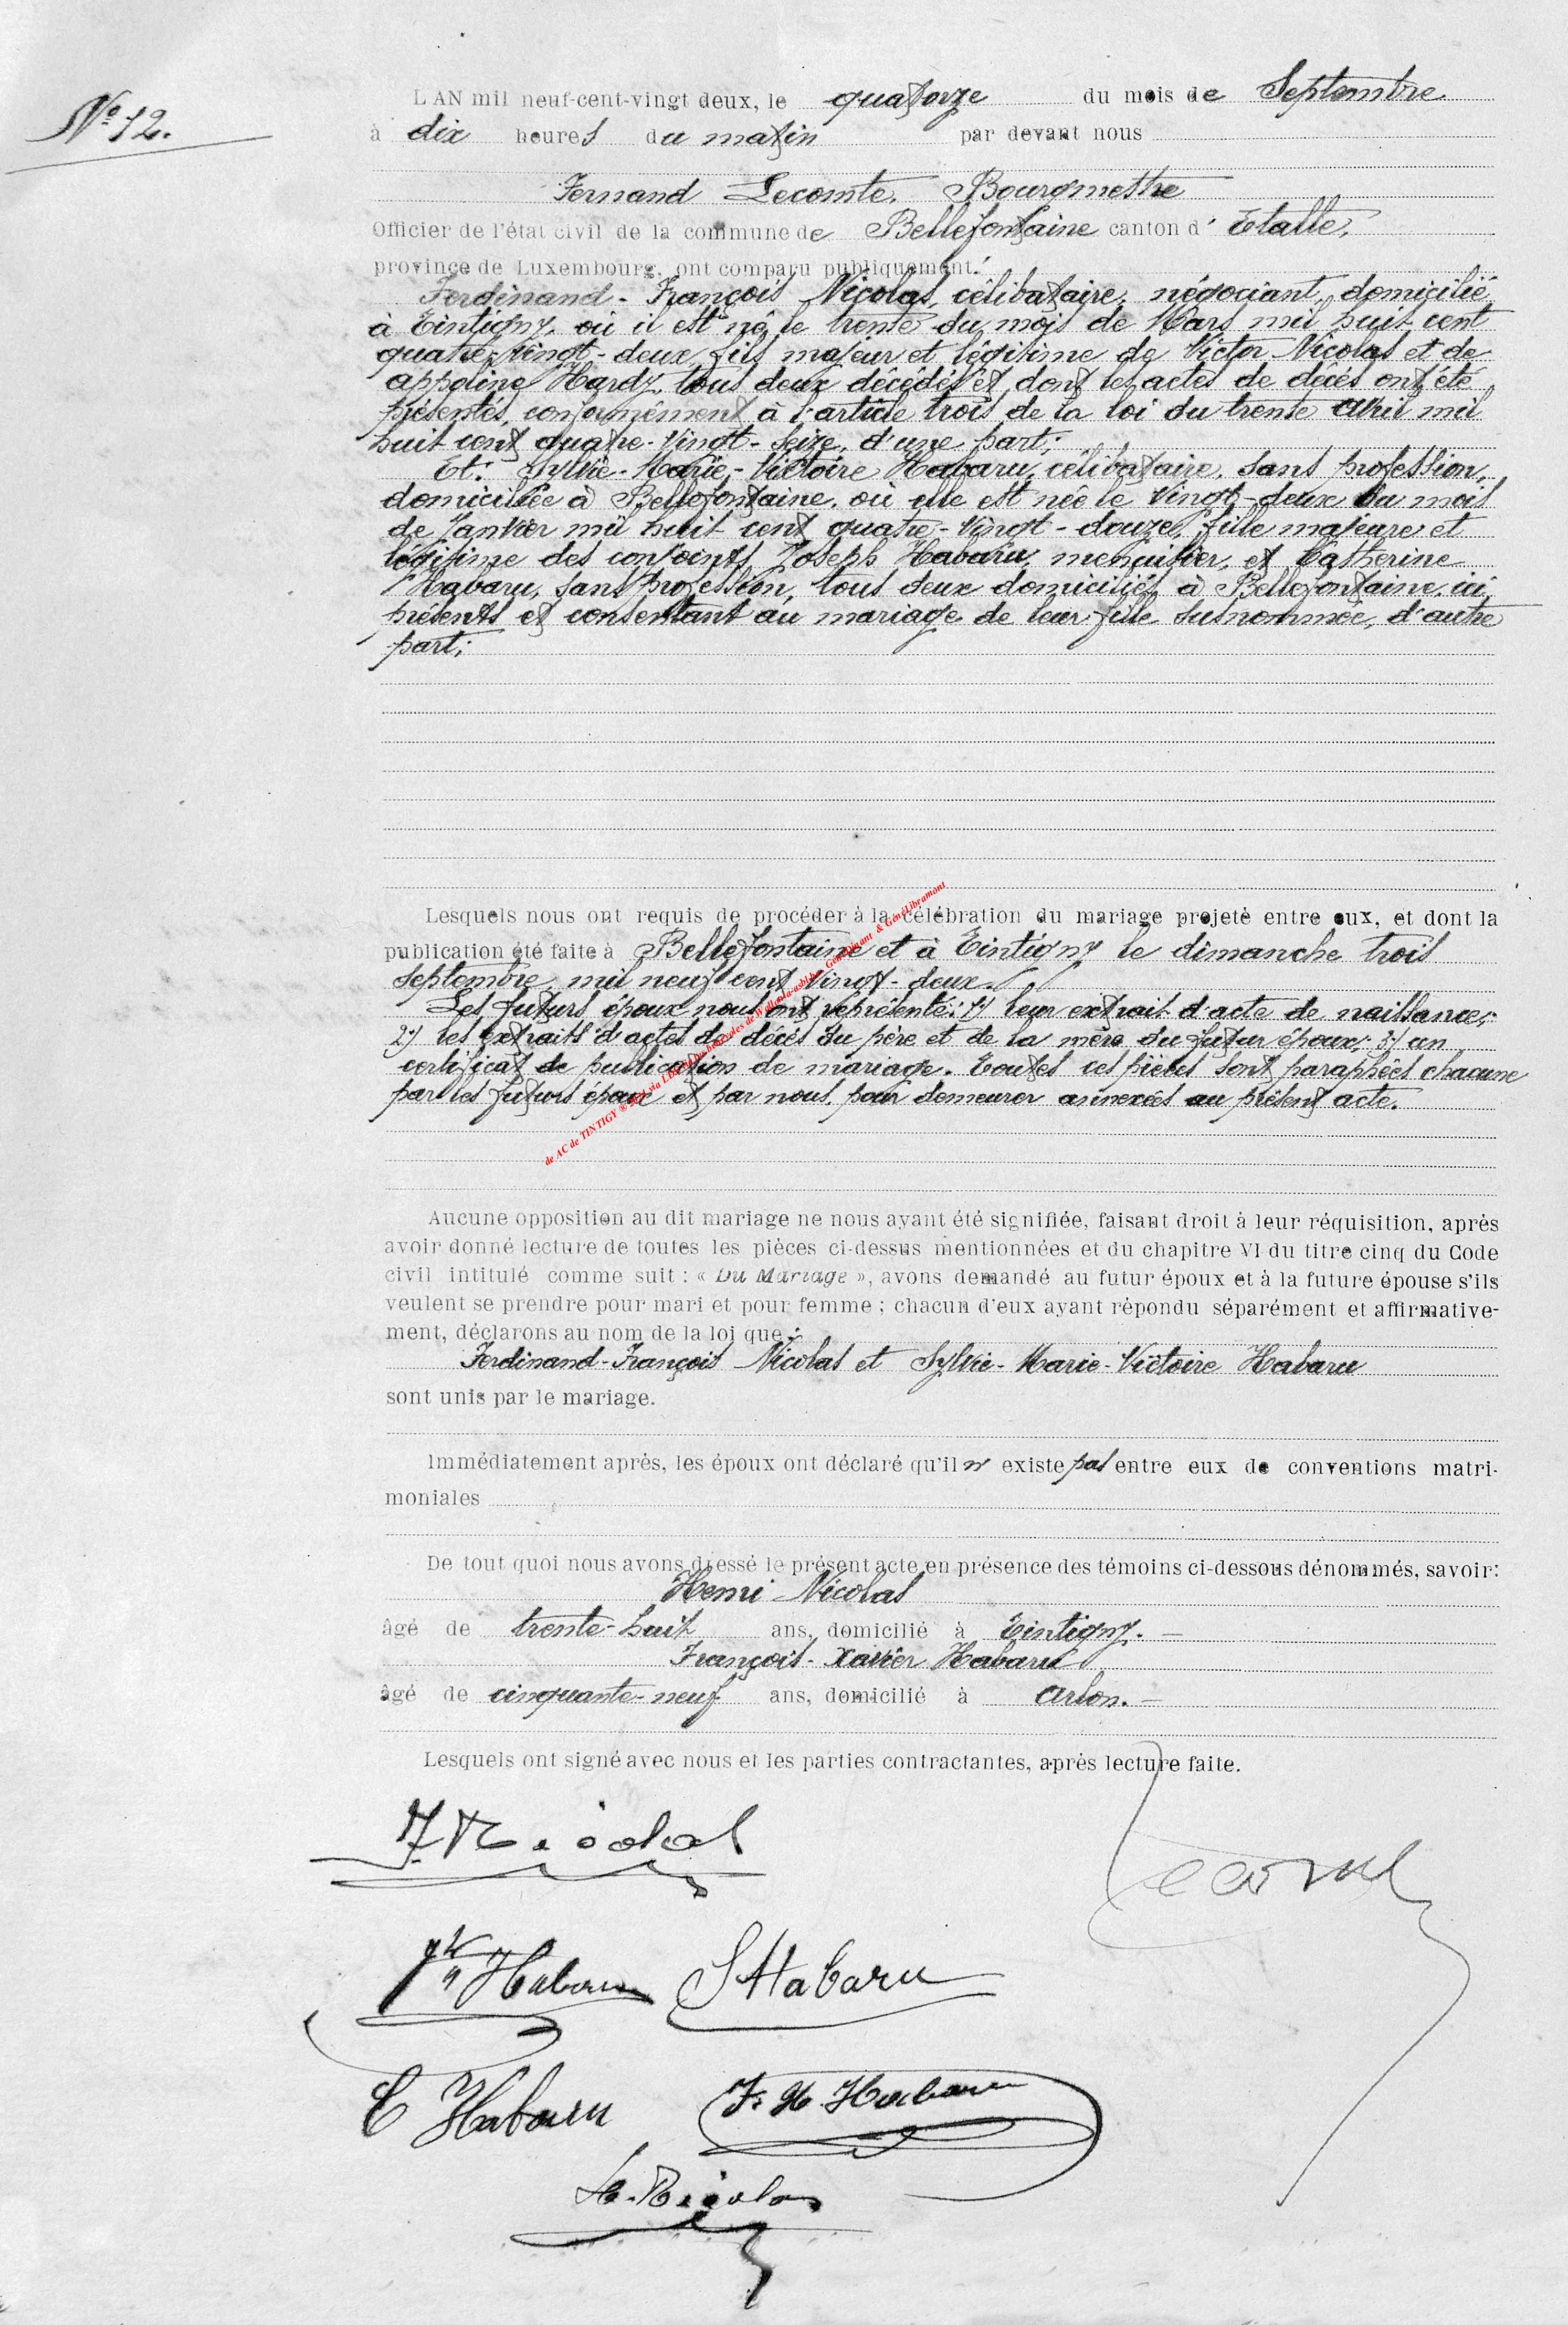 N° 12.
L'AN mil neuf-cent-vingt deux, le quatorze du mois de Septembre
à dix heures du matin par devant nous
Fernand Lecomte, Bourgmestre
Officier de l'état civil de la commune de Bellefontaine canton d' Etalle,
province de Luxembourg, ont comparu publiquement:
Ferdinand-François Nicolas, célibataire, négociant, domicilié
à Tintigny, où il est né le trente du mois de Mars mil huit cent
quatre-vingt-deux, fils majeur et légitime de Victor Nicolas et de
Appoline Hardy, tous deux décédés et dont les actes de décès ont été
présentés, conformément à l'article trois de la loi du trente Avril mil
huit cent quatre-vingt-seize, d'une part;
Et: Sylvie-Marie-Victoire Habaru, célibataire, sans profession,
domiciliée à Bellefontaine, où elle est née le vingt-deux du mois
de Janvier mil huit cent quatre-vingt-douze, fille majeure et
légitime des conjoints Joseph Habaru, menuisier, et Catherine
Habaru, sans profession, tous deux domiciliés à Bellefontaine, ici
présents et consentant au mariage de leur fille susnommée, d'autre
part;
Lesquels nous ont requis de procéder à la célébration du mariage projeté entre eux, et dont la
publication été faite à Bellefontaine et à Tintigny le dimanche trois
septembre mil neuf cent vingt-deux.
Les futurs époux nous ont représenté: 1°) leur extrait d'acte de naissance;
2°) les extraits d'actes de décès du père et de la mère du futur époux; 3°) un
certificat de publication de mariage. Toutes ces pièces sont paraphées chacune
par les futurs époux et par nous pour demeurer annexées au présent acte.
Aucune opposition au dit mariage ne nous ayant été signifiée, faisant droit à leur réquisition, après
avoir donné lecture de toutes les pièces ci-dessus mentionnées et du chapitre VI du titre cinq du Code
civil intitulé comme suit : « Du Mariage », avons demandé au futur époux et à la future épouse s'ils
veulent se prendre pour mari et pour femme ; chacun d'eux ayant répondu séparément et affirmative-
ment, déclarons au nom de la loi que:
Ferdinand-François Nicolas et Sylvie-Marie-Victoire Habaru
sont unis par le mariage.
Immédiatement après, les époux ont déclaré qu'il n' existe pas entre eux de conventions matri-
moniales
De tout quoi nous avons dressé le présent acte en présence des témoins ci-dessous dénommés, savoir:
Henri Nicolas
âgé de trente-huit ans, domicilié à Tintigny.
François-Xavier Habaru
âgé de cinquante-neuf ans, domicilié à Arlon.
Lesquels ont signé avec nous et les parties contractantes, après lecture faite.
F Nicolas
Lecomte
Habaru S Habaru
C Habaru F. X. Habaru
H. Nicolas